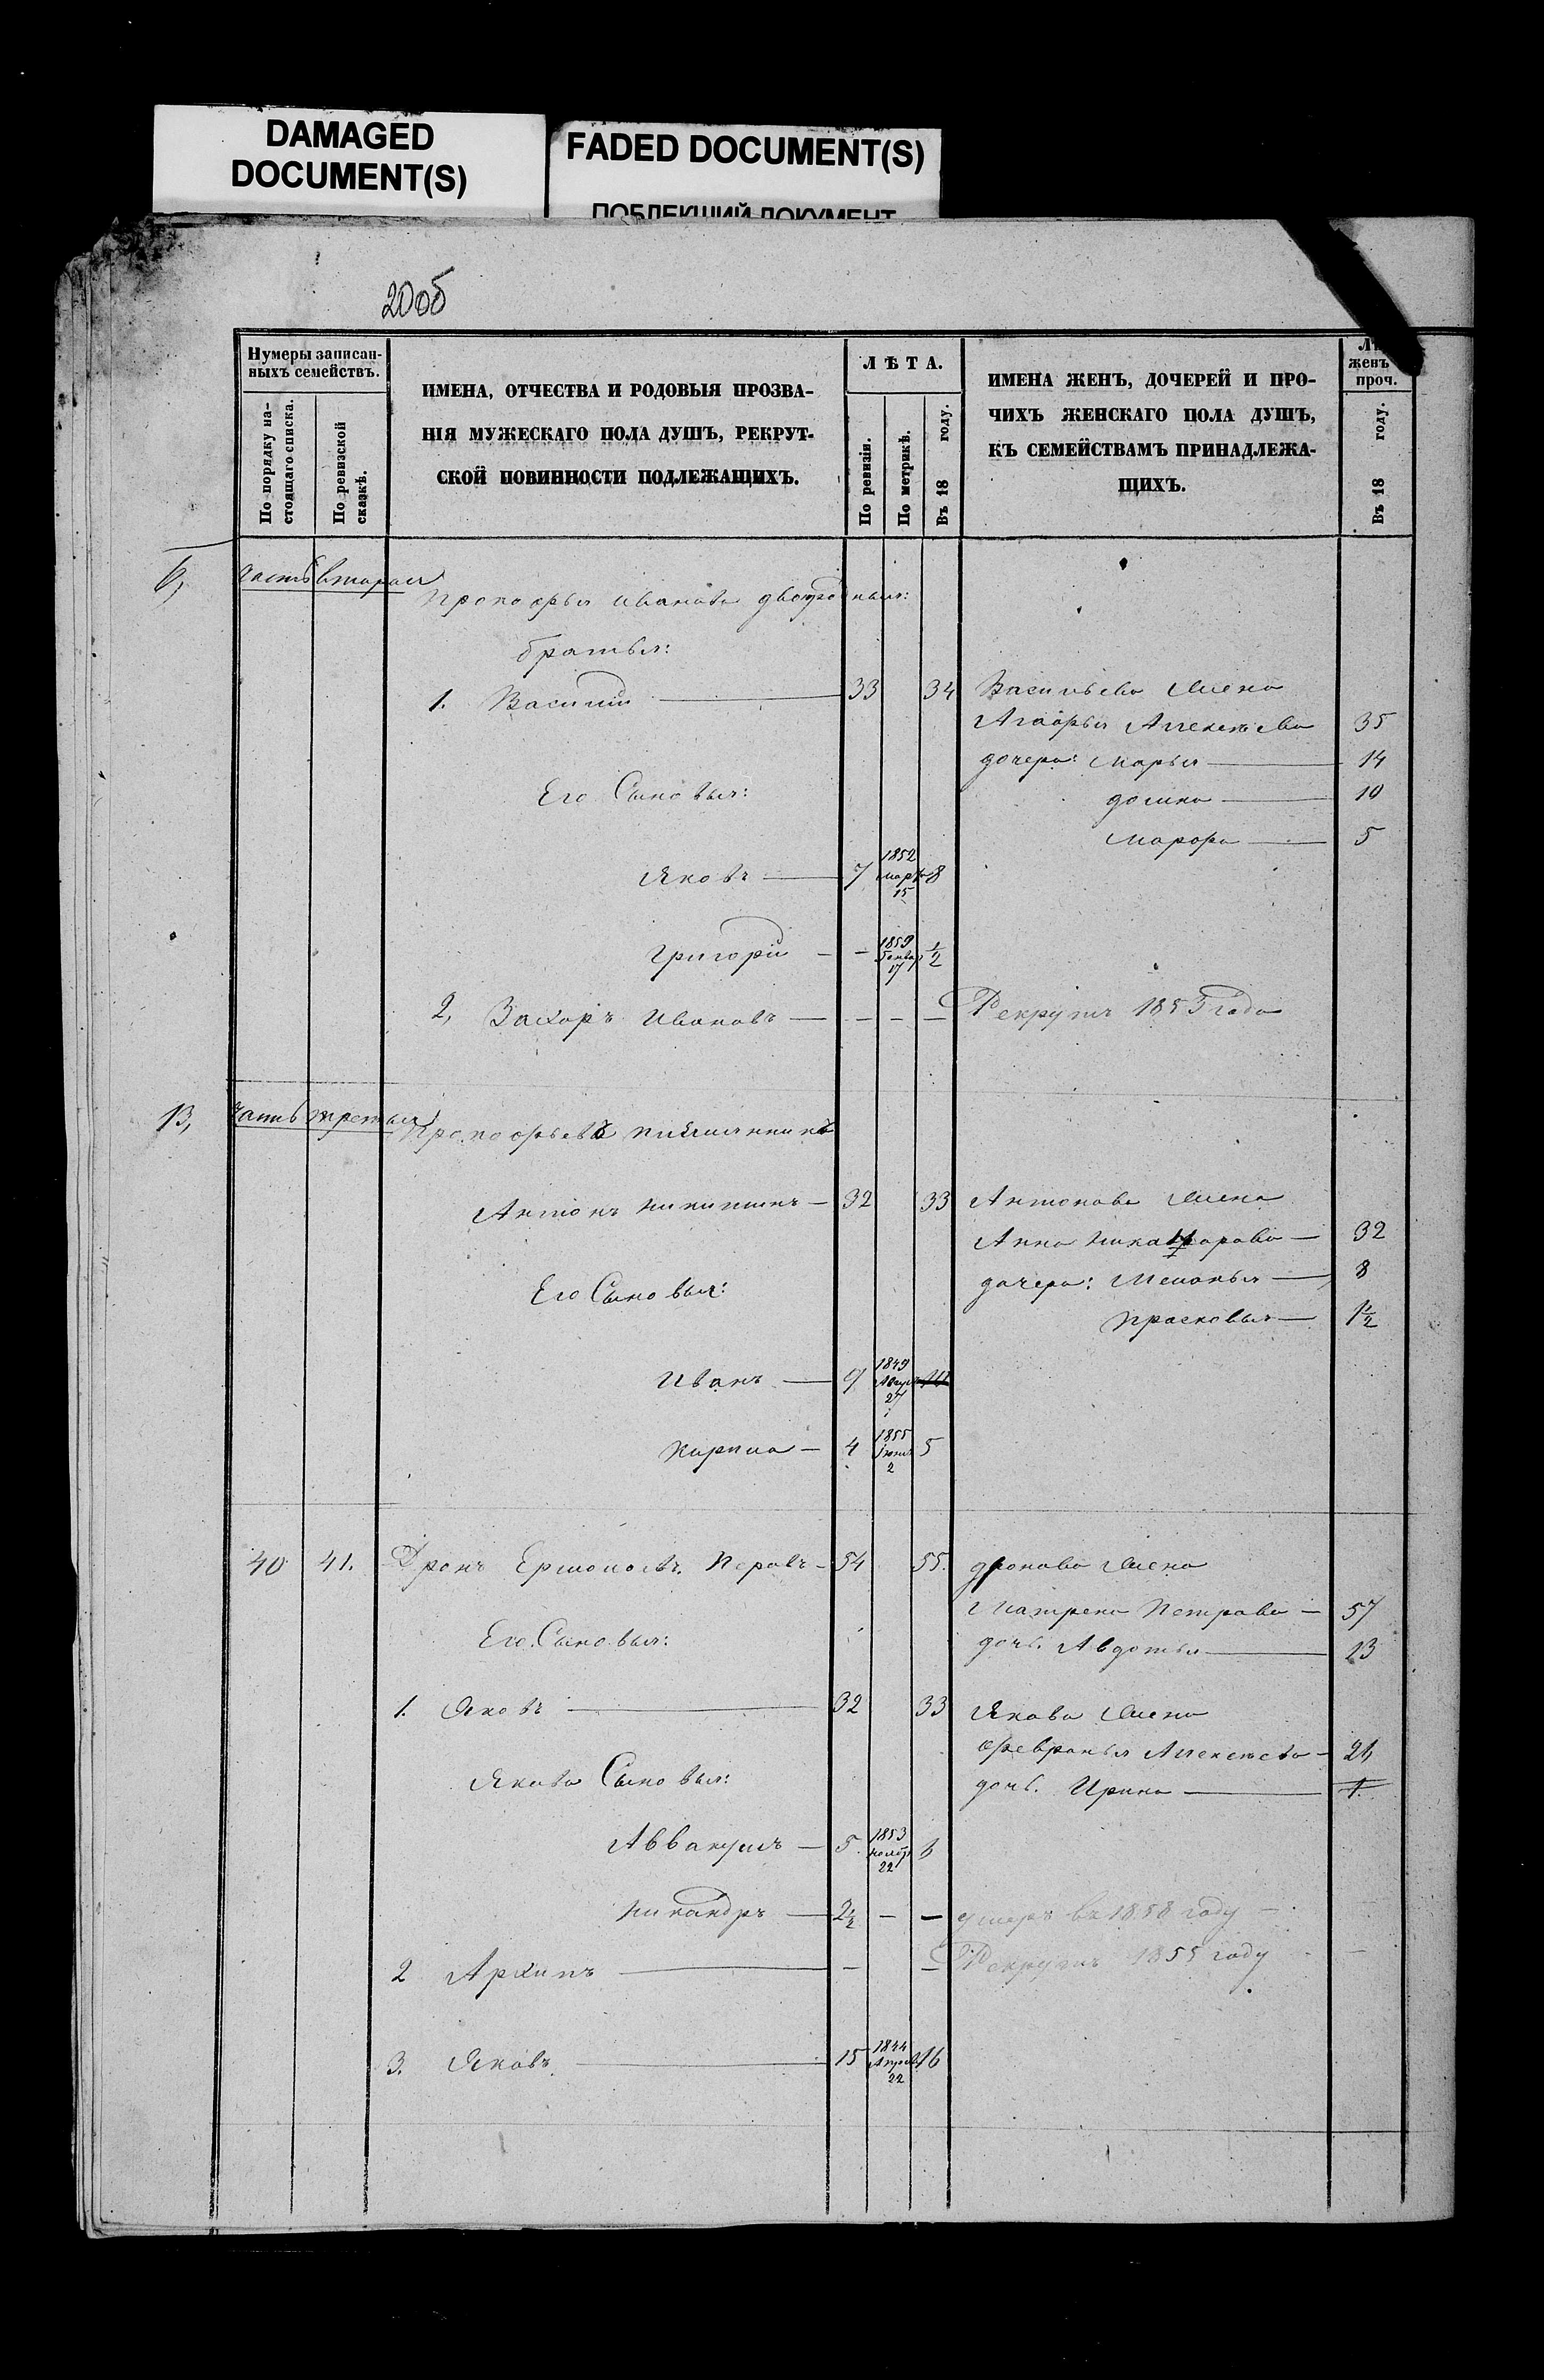 DAMAGED
DOCUMENT(S)
FADED DOCUMENT(S)
ПОБЛЕКШИЙ ДОКУМЕНТ
20об
Нумеры записан-
ныхъ семействъ.
По порядку на-
стоящаго списка.
По ревизской
сказкѣ.
ИМЕНА, ОТЧЕСТВА И РОДОВЫЯ ПРОЗВА-
НІЯ МУЖЕСКАГО ПОЛА ДУШЪ, РЕКРУТ-
СКОЙ ПОВИННОСТИ ПОДЛЕЖАЩИХЪ.
ЛѢТА.
По ревизіи.
По метрикѣ.
Въ 18 году.
ИМЕНА ЖЕНЪ, ДОЧЕРЕЙ И ПРО-
ЧИХЪ ЖЕНСКАГО ПОЛА ДУШЪ,
КЪ СЕМЕЙСТВАМЪ ПРИНАДЛЕЖА-
ЩИХЪ.
женъ
проч.
Въ 18 году.
6, часть вторая
Прокофья Иванова двоюродныя:
братья:
1. Василий — 33 34 Васильева жена
Агафья Алексѣева 35
дочери: Марья — 14
Его Сыновья: домна — 10
Марфа — 5
Яковъ — 7 1852 Март 15 8
Григорий — — 1859 Генвар 17 1/2
2, Захаръ Ивановъ — — — — Рекрутъ 1853 года
13, часть третья
Прокофьевъ племянникъ
Антонъ Никитинъ — 32 33 Антонова жена
Анна Никанорова — 32
Его Сыновья: дочери: Меланья — 8
Прасковья — 1 1/2
Иванъ — 9 1849 Авгус 27
Кирила — 4 1855 Іюня 2 5
40 41. Дронъ Ермолаевъ Перовъ — 54 55. дронова жена
Матрена Петрова — 57
Его Сыновья: дочь. Авдотья — 13
1. Яковъ — 32 33 Якова жена
Февранья Алексѣева — 21
Якова Сыновья: дочь. Ирина — 1
Аввакумъ — 5 1853 Ноябр 22 6
Никандръ — 2 1/2 — — умеръ въ 1858 году —
2 Архипъ — — — Рекрутъ 1855 году —
3. Яковъ — 15 1844 Апрел 22 16